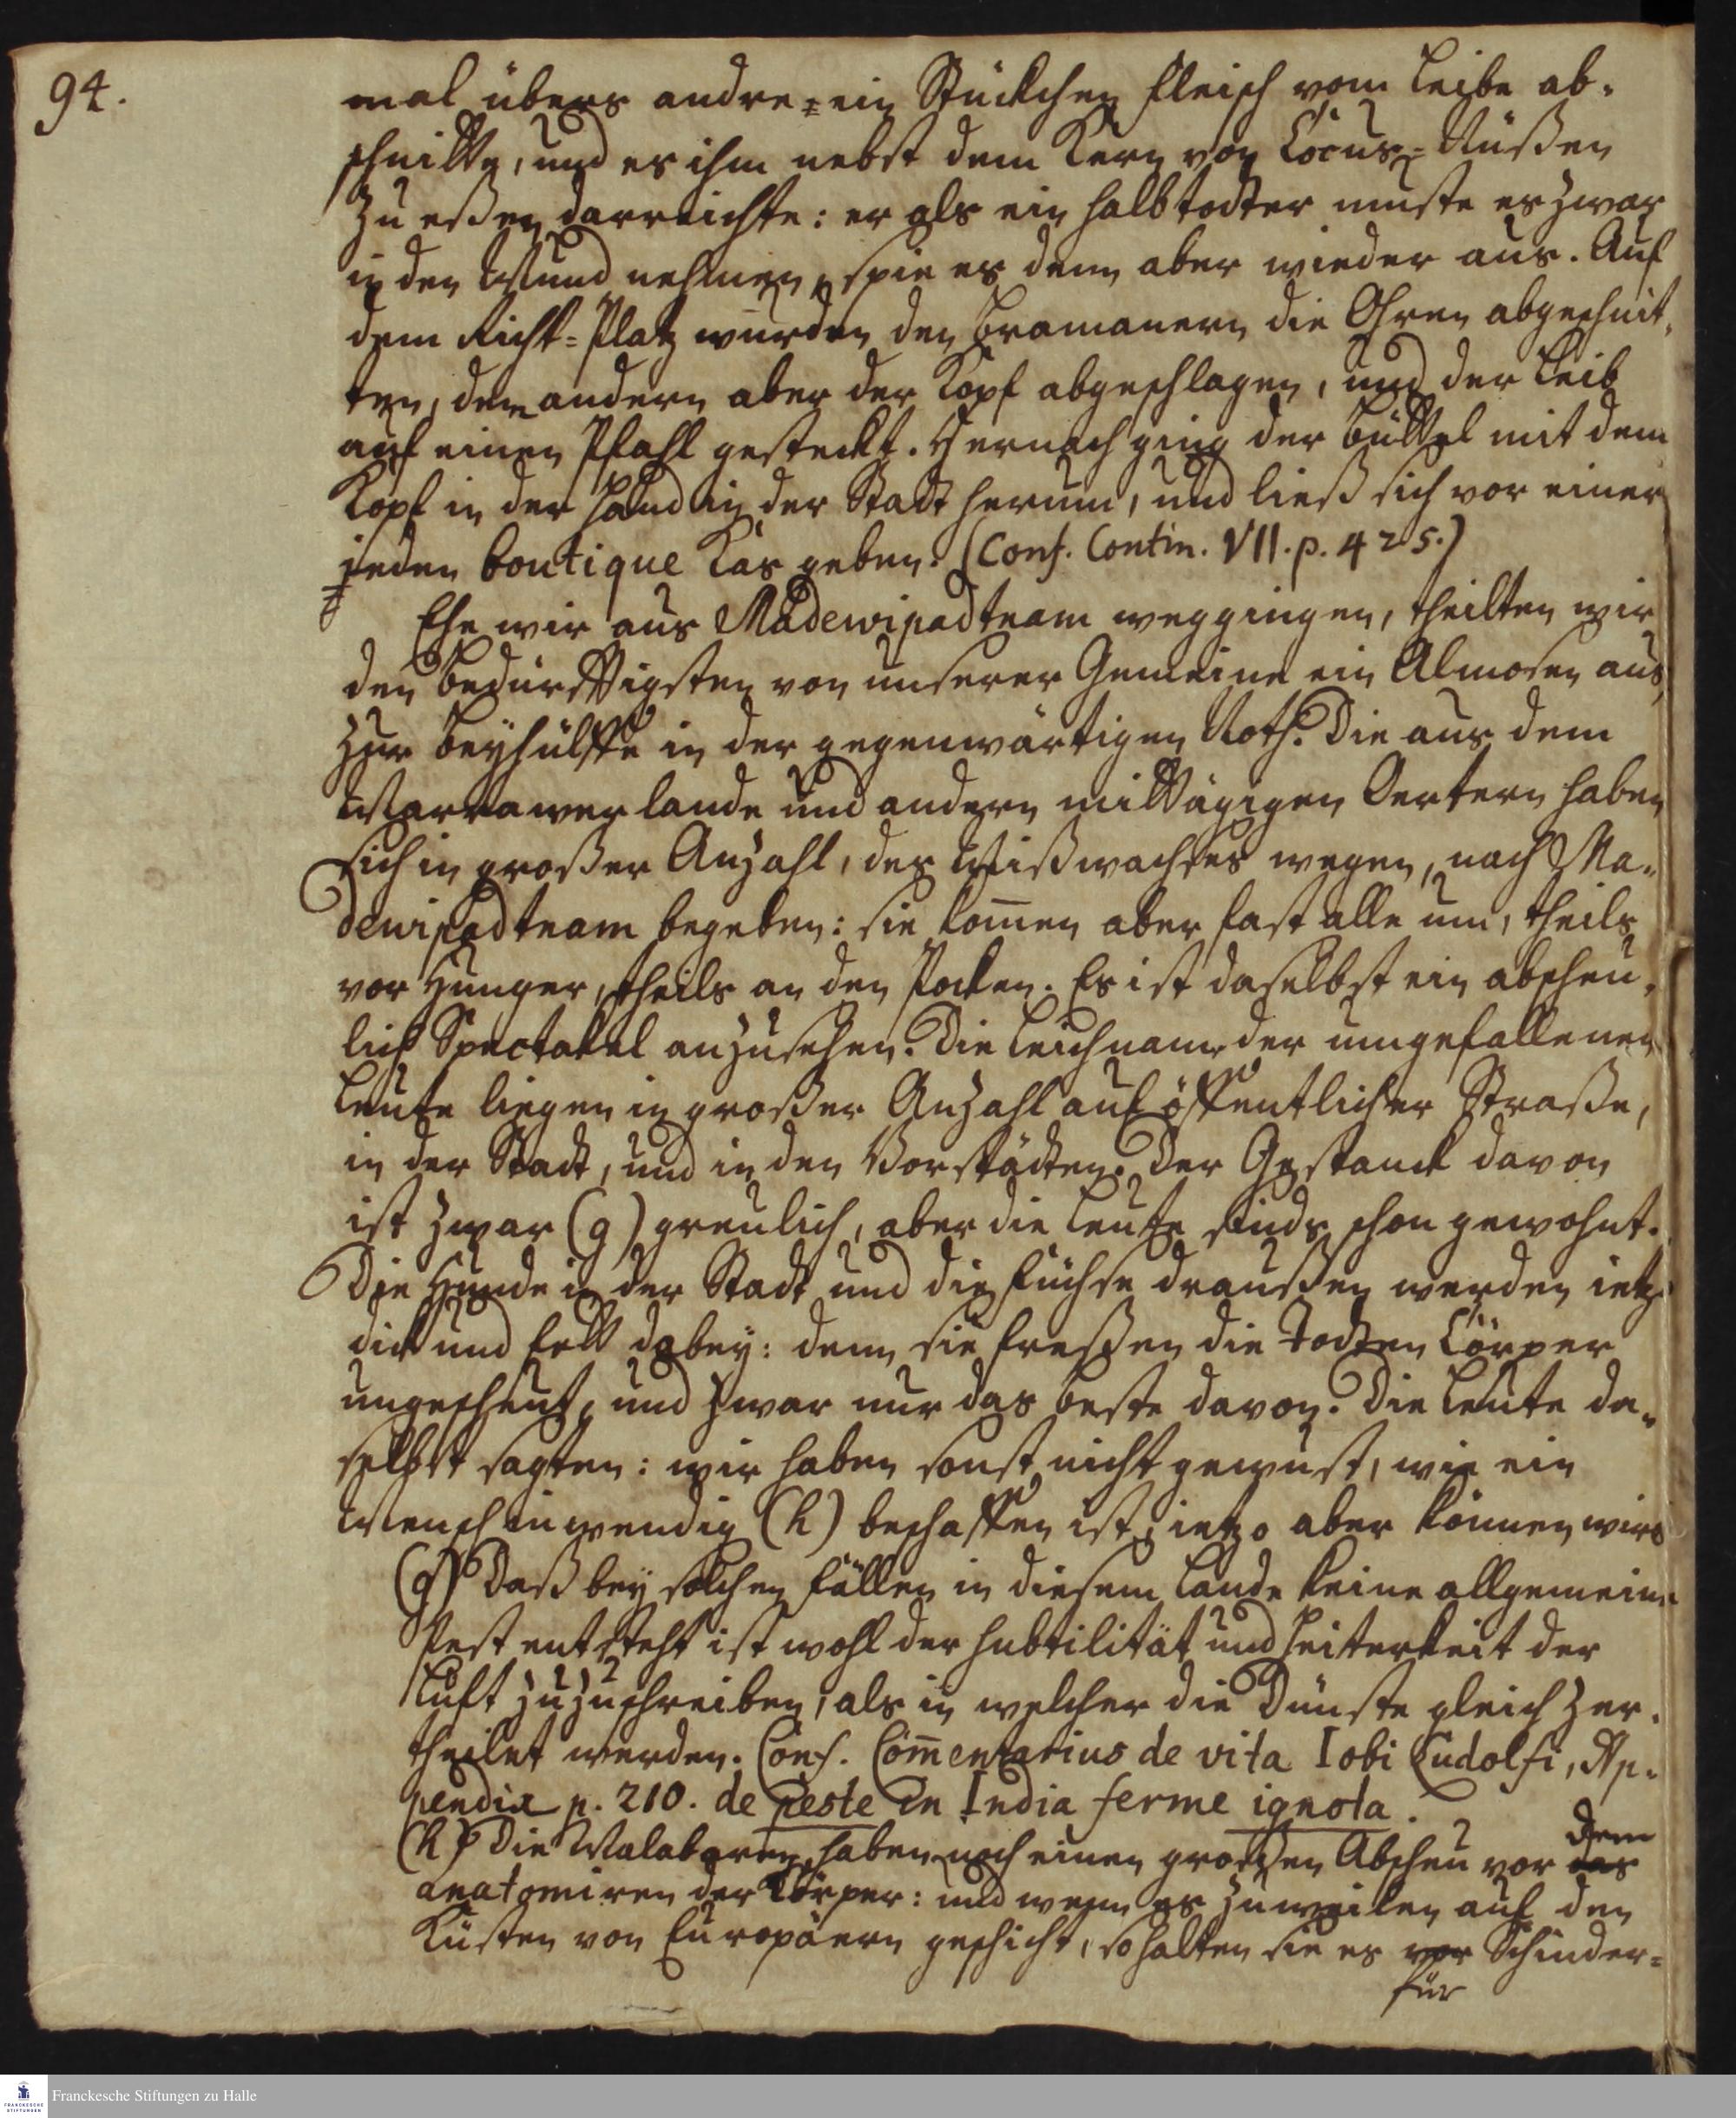 94.
mal übers andre ein Stückchen fleisch vom Leibe ab-
schnitte, und es ihm nebst dem Kern von Cocus-Nüßen
zu eßen darreichte: er als ein halbtodter muste es zwar
in den Mund nehmen, spie es denn aber wieder aus. Auf
dem Richt-Platz wurden den Bramanern die Ohren abgeschnit-
ten, dem andern aber der Kopf abgeschlagen, und der Leib
auf einen Pfahl gesteckt. Hernach ging der Büttel mit dem
Kopf in der Hand in der Stadt herum, und ließ sich vor einer
jeden boutique Kas geben. (Conf. Contin. VII. p. 425.)
Ehe wir aus Madewipadnam weggingen, theilten wir
den bedürfftigsten von unserer Gemeine ein Almosen aus,
zur Beyhülffe in der gegenwärtigen Noth. Die aus dem
Marrawerlande und andern mittägigen Oertern haben
sich in großer Anzahl, des Mißwachses wegen, nach Ma-
dewipadnam begeben: sie kom̄en aber fast alle um, theils
vor Hunger, theils an den Pocken. Es ist daselbst ein abscheu-
lich Spectakel anzusehen. Die Leichname der umgefallenen
Leute liegen in großer Anzahl auf öffentlicher Straße,
in der Stadt, und in den Vorstädten. Der Gestanck davon
ist zwar (g) greulich, aber die Leute sinds schon gewohnt.
Die Hunde in der Stadt und die füchse draußen werden ietzt
dick und fett dabey: denn sie freßen die todten Cörper
ungescheut, und zwar nur das beste davon. Die Leute da-
selbst sagten: wir haben sonst nicht gewust, wie ein
Mensch inwendig (h) beschaffen ist, ietzo aber können wirs
(g) Daß bey solchen fällen in diesem Lande keine allgemeine
Pest entsteht ist wohl der subtilität und Heiterkeit der
Luft zuzuschreiben, als in welcher die Dünste gleich zer-
theilet werden. Conf. Com̄entarius de vita Iobi Ludolfi, Ap-
pendix p. 210. de peste in India ferme ignota.
(h) Die Malabaren haben noch einen großen Abscheu vor das dem
anatomiren der Cörper: und wenn es zuweilen auf den
Küsten von Europäern geschicht, so halten sie es vor Schinder-
für
Franckesche Stiftungen zu Halle
FRANCKESCHE
STIFTUNGEN